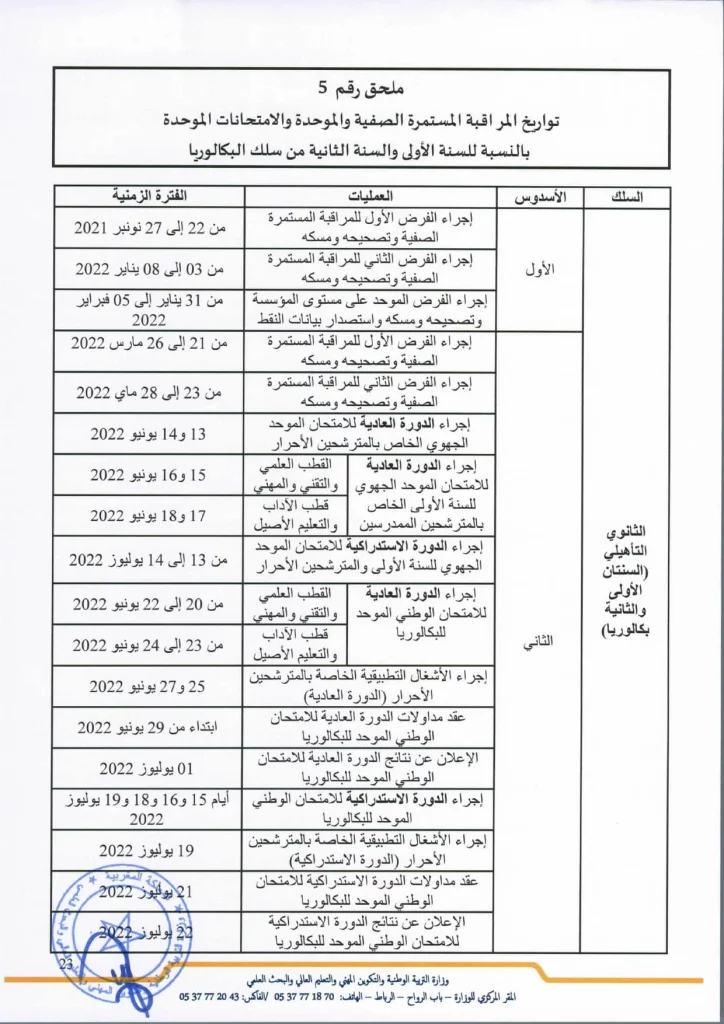 ملحق رقم 5
تواريخ المراقبة المستمرة الصفية والموحدة والامتحانات الموحدة
بالنسبة للسنة الأولى والسنة الثانية من سلك البكالوريا
السلك
الأسدوس
العمليات
الفترة الزمنية
الثانوي
التأهيلي
(السنتان
الأولى
والثانية
بكالوريا)
الأول
إجراء الفرض الأول للمراقبة المستمرة
الصفية وتصحيحه ومسكه
من 22 إلى 27 نونبر 2021
إجراء الفرض الثاني للمراقبة المستمرة
الصفية وتصحيحه ومسكه
من 03 إلى 08 يناير 2022
إجراء الفرض الموحد على مستوى المؤسسة
وتصحيحه ومسكه واستصدار بيانات النقط
من 31 يناير إلى 05 فبراير
2022
الثاني
إجراء الفرض الأول للمراقبة المستمرة
الصفية وتصحيحه ومسكه
من 21 إلى 26 مارس 2022
إجراء الفرض الثاني للمراقبة المستمرة
الصفية وتصحيحه ومسكه
من 23 إلى 28 ماي 2022
إجراء الدورة العادية للامتحان الموحد
الجهوي الخاص بالمترشحين الأحرار
13 و14 يونيو 2022
إجراء الدورة العادية
للامتحان الموحد الجهوي
للسنة الأولى الخاص
بالمترشحين الممدرسين
القطب العلمي
والتقني والمهني
15 و16 يونيو 2022
قطب الآداب
والتعليم الأصيل
17 و18 يونيو 2022
إجراء الدورة الاستدراكية للامتحان الموحد
الجهوي للسنة الأولى والمترشحين الأحرار
من 13 إلى 14 يوليوز 2022
إجراء الدورة العادية
للامتحان الوطني الموحد
للبكالوريا
القطب العلمي
والتقني والمهني
من 20 إلى 22 يونيو 2022
قطب الآداب
والتعليم الأصيل
من 23 إلى 24 يونيو 2022
إجراء الأشغال التطبيقية الخاصة بالمترشحين
الأحرار (الدورة العادية)
25 و27 يونيو 2022
عقد مداولات الدورة العادية للامتحان
الوطني الموحد للبكالوريا
ابتداء من 29 يونيو 2022
الإعلان عن نتائج الدورة العادية للامتحان
الوطني الموحد للبكالوريا
01 يوليوز 2022
إجراء الدورة الاستدراكية للامتحان الوطني
الموحد للبكالوريا
أيام 15 و16 و18 و19 يوليوز
2022
إجراء الأشغال التطبيقية الخاصة بالمترشحين
الأحرار (الدورة الاستدراكية)
19 يوليوز 2022
عقد مداولات الدورة الاستدراكية للامتحان
الوطني الموحد للبكالوريا
21 يوليوز 2022
الإعلان عن نتائج الدورة الاستدراكية
للامتحان الوطني الموحد للبكالوريا
22 يوليوز 2022
23
وزارة التربية الوطنية والتكوين المهني والتعليم العالي والبحث العلمي
المقر المركزي للوزارة – باب الرواح – الرباط – الهاتف: 70 18 77 37 05 /الفاكس: 43 20 77 37 05